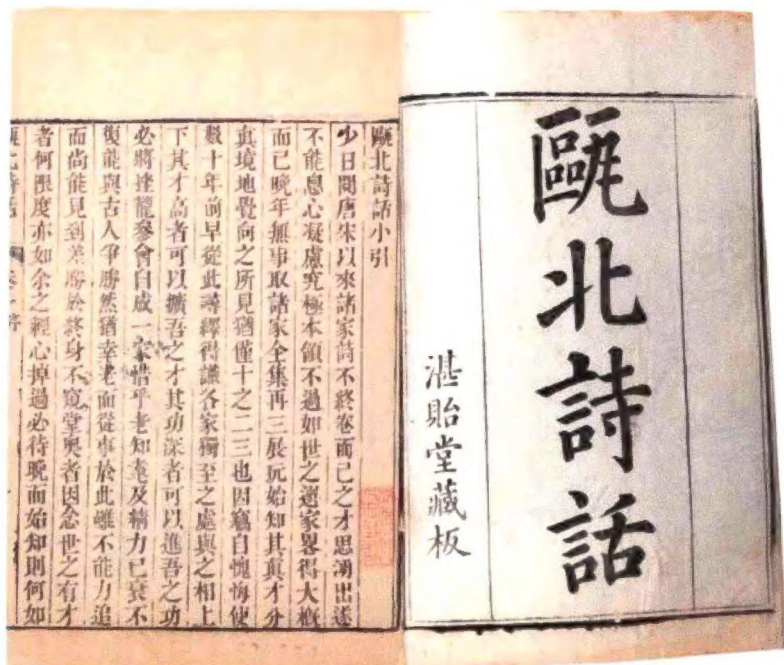 甌北詩話
湛貽堂藏板
甌北詩話小引
少日閱唐宋以來諸家詩不終卷而己之才思湧出遂
不能息心凝慮究極本領不過如世之選家畧得大概
而已晚年無事取諸家全集再三展玩始知其真才分
真境地覺向之所見猶僅十之二三也因竊自愧悔使
數十年前早從此尋繹得識各家獨至之處與之相上
下其才高者可以擴吾之才其功深者可以進吾之功
必將挫籠參會自成一家惜乎老知耄及精力已衰不
復能與古人爭勝然猶幸老而從事於此雖不能力追
而尚能見到差勝於終身不窺堂奧者因念世之有才
者何限度亦如余之輕心掉過必待晚而始知則何如
甌北詩話